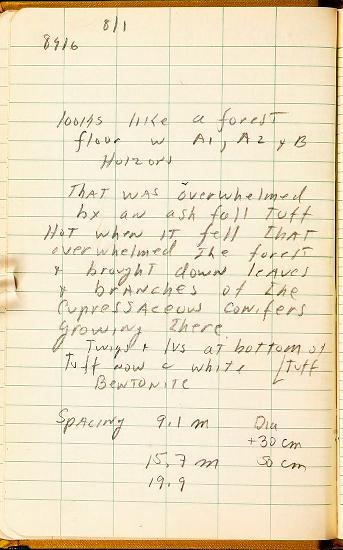 8/1
8916
looks like a forest
floor w A1, A2 & B
Horizons
That was overwhelmed
by an ash fall tuff
Hot when it fell that
overwhelmed the forest
& brought down leaves
& branches of the
Cupressaceous conifers
growing there
Twigs & lvs at bottom of
Tuff now a white [Tuff
Bentonite
Spacing 9.1 m Dia
+30 cm
15.7 m 50 cm
19.9